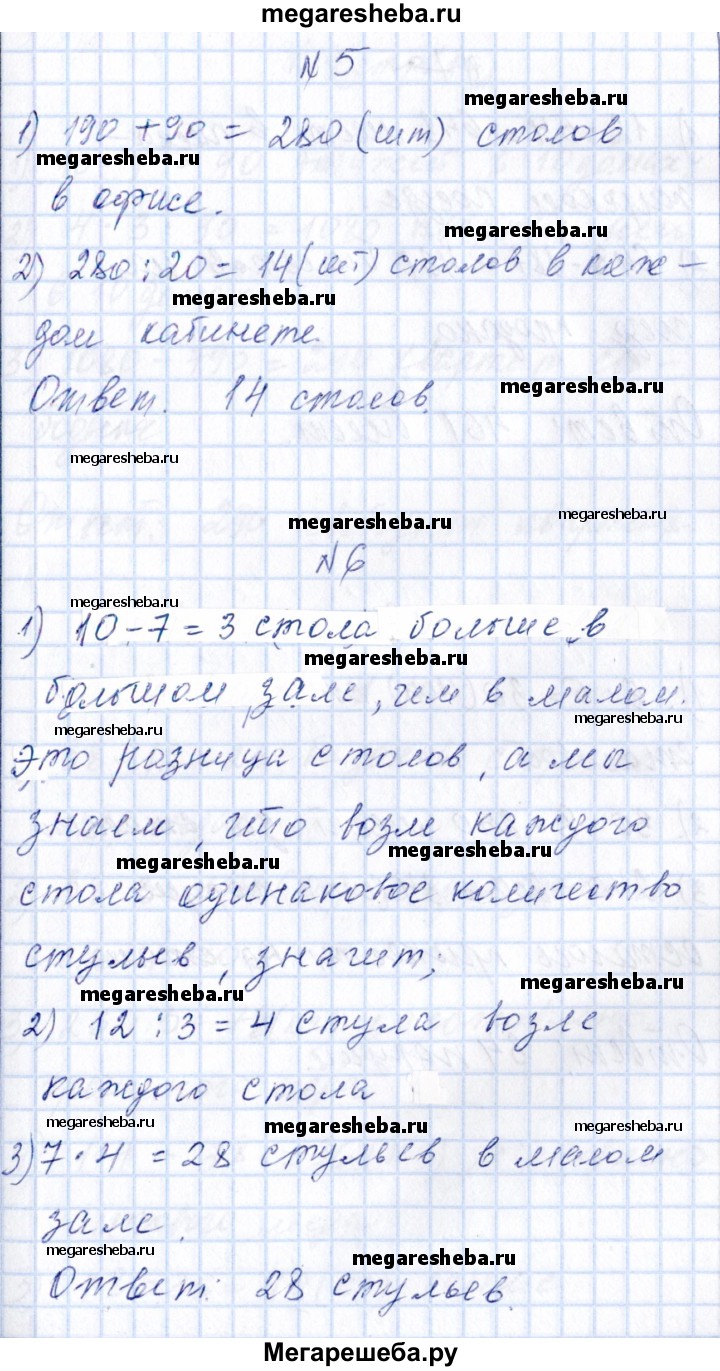 megaresheba.ru
N 5
megaresheba.ru
1) 190 + 90 = 280 (шт) столов
megaresheba.ru
в офисе.
megaresheba.ru
2) 280 : 20 = 14 (шт) столов в каж-
megaresheba.ru
дом кабинете.
megaresheba.ru
Ответ. 14 столов.
megaresheba.ru
megaresheba.ru
megaresheba.ru
N 6
megaresheba.ru
1) 10 - 7 = 3 стола больше в
megaresheba.ru
большом зале, чем в малом.
megaresheba.ru
megaresheba.ru
Это разница столов, а мы
знаем, что возле каждого
megaresheba.ru
megaresheba.ru
стола одинаковое количество
стульев, значит;
megaresheba.ru
megaresheba.ru
2) 12 : 3 = 4 стула возле
каждого стола
megaresheba.ru
megaresheba.ru
megaresheba.ru
3) 7 · 4 = 28 стульев в малом
зале.
megaresheba.ru
megaresheba.ru
Ответ: 28 стульев.
Мегарешеба.ру